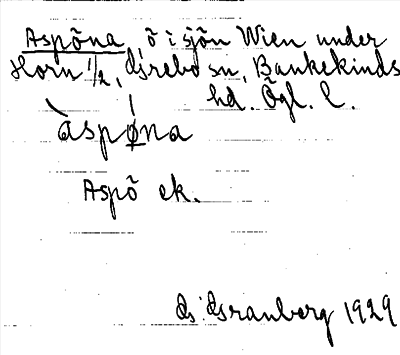 Aspöna ö i sjön Wien under
Horn 1/2, Grebo sn, Bankekinds
hd. Ögl. l.
àspø̀na
Aspö ek.
G. Granberg 1929